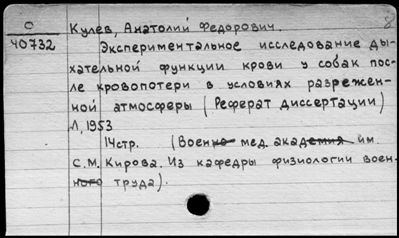 О
40732
Кулев, Анатолий Федорович.
Экспериментальное исследование ды-
хательной функции крови у собак пос-
ле кровопотери в условиях разрежен-
ной атмосферы (Реферат диссертации)
Л, 1953
14стр. (Военно мед. академия им.
С.М. Кирова. Из кафедры физиологии воен-
ного труда).